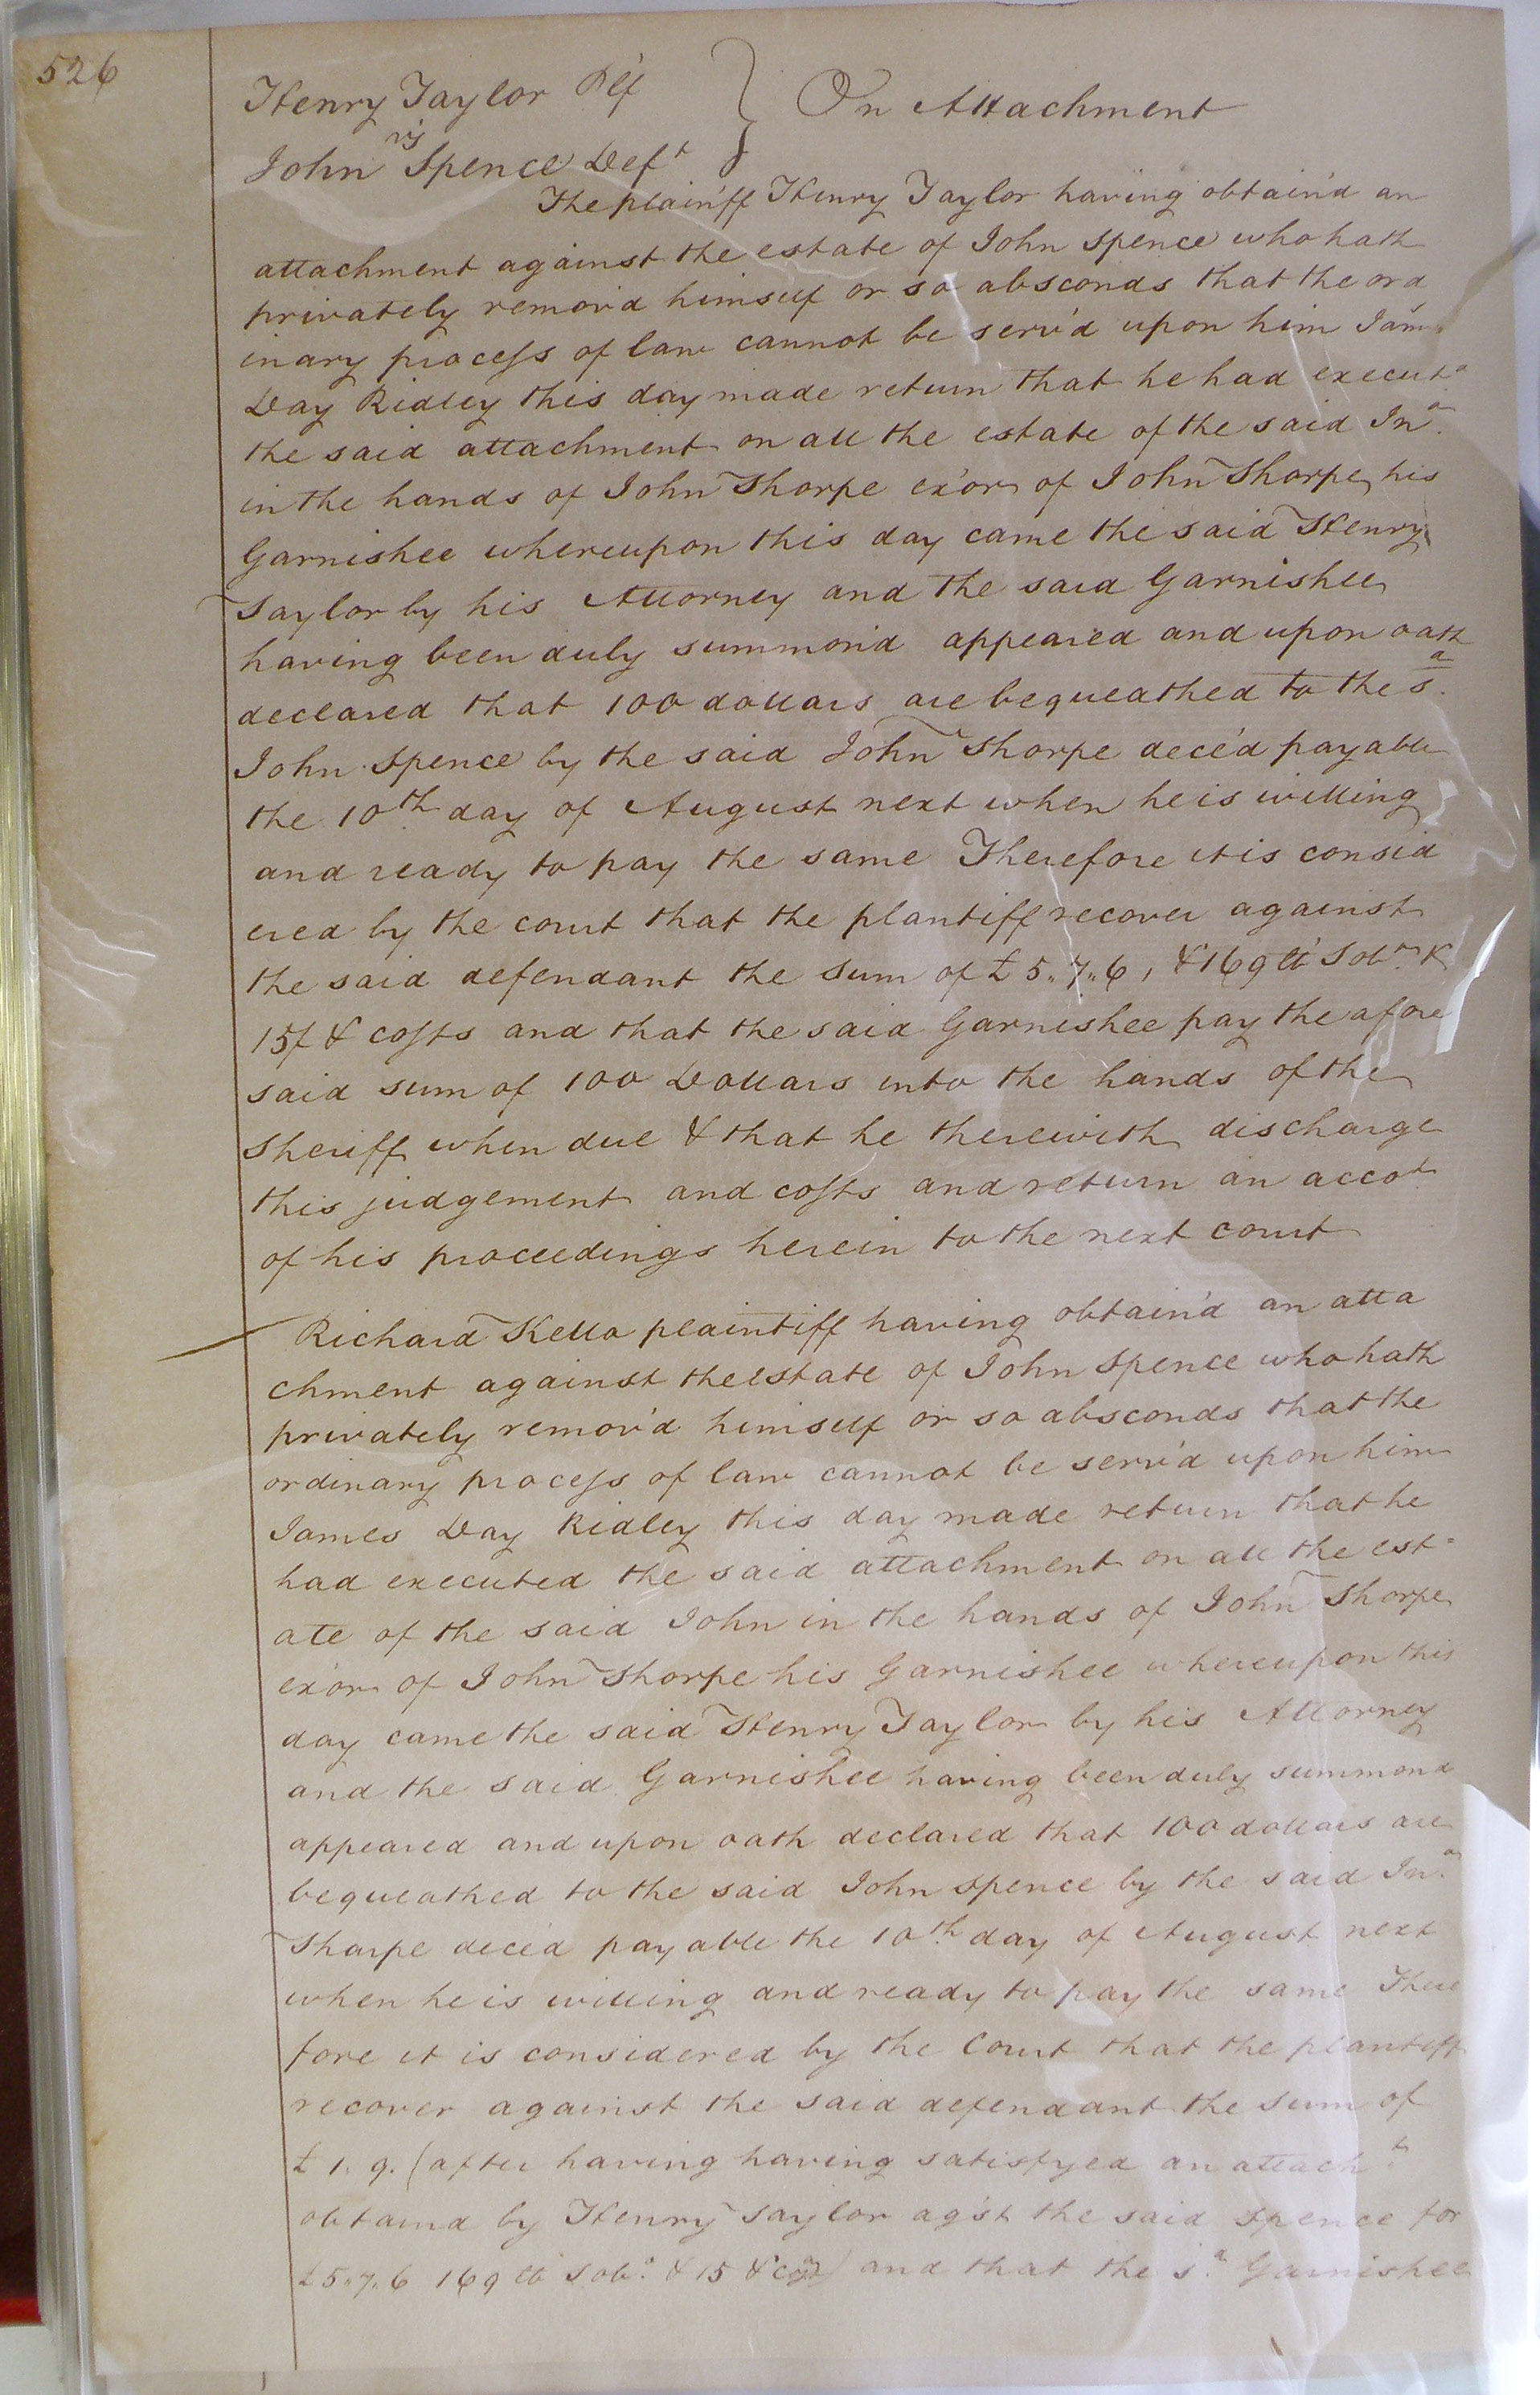 526
Henry Taylor Plf
vs
John Spence Deft
On Attachment
The plain'ff Henry Taylor having obtain'd an
attachment against the estate of John Spence who hath
privately remov'd himself or so absconds that the ord
inary process of law cannot be serv'd upon him Jam.s
Day Ridley this day made return that he had execut.d
the said attachment on all the estate of the said Jn.o
in the hands of John Tharpe ex'or of John Tharpe his
Garnishee whereupon this day came the said Henry
Taylor by his Attorney and the said Garnishee
having been duly summon'd appeared and upon oath
declared that 100 dollars are bequeathed to the s.d
John Spence by the said John Tharpe dece'd payable
the 10th day of August next when he is willing
and ready to pay the same Therefore it is consid
ered by the court that the plantiff recover against
the said defendant the sum of £5..7..6, & 169 lb Tob.o &
15/ & costs and that the said Garnishee pay the afore
said sum of 100 Dollars into the hands of the
Sheriff when due & that he therewith discharge
this judgement and costs and return an acco.t
of his proceedings herein to the next court
Richard Kello plaintiff having obtain'd an atta
chment against the estate of John Spence who hath
privately remov'd himself or so absconds that the
ordinary process of law cannot be serv'd upon him
James Day Ridley this day made return that he
had executed the said attachment on all the est=
ate of the said John in the hands of John Tharpe
ex'or of John Tharpe his Garnishee whereupon this
day came the said Henry Taylor by his Attorney
and the said Garnishee having been duly summond
appeared and upon oath declared that 100 dollars are
bequeathed to the said John Spence by the said Jn.o
Tharpe dece'd payable the 10th day of August next
when he is willing and ready to pay the same There
fore it is considered by the Court that the plantiff
recover against the said defendant the sum of
£1. 9. (after having having satisfyed an attach.t
obtaind by Henry Taylor ag'st the said Spence for
£5..7..6 169 lb Tob.o & 15 & cost) and that the s.d Garnishee